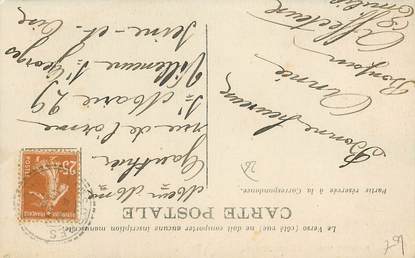 Le Verso (côté vue) ne doit comporter aucune inscription manuscrite
CARTE POSTALE
Partie réservée à la Correspondance.
Bonne heureuse
Année
Bonjour
Affectueux
Emilie
Mme
Gauthier
rue de l'orme
Ste Marie 29
Villeneuve St Georges
Seine-et-Oise
25c
POSTES